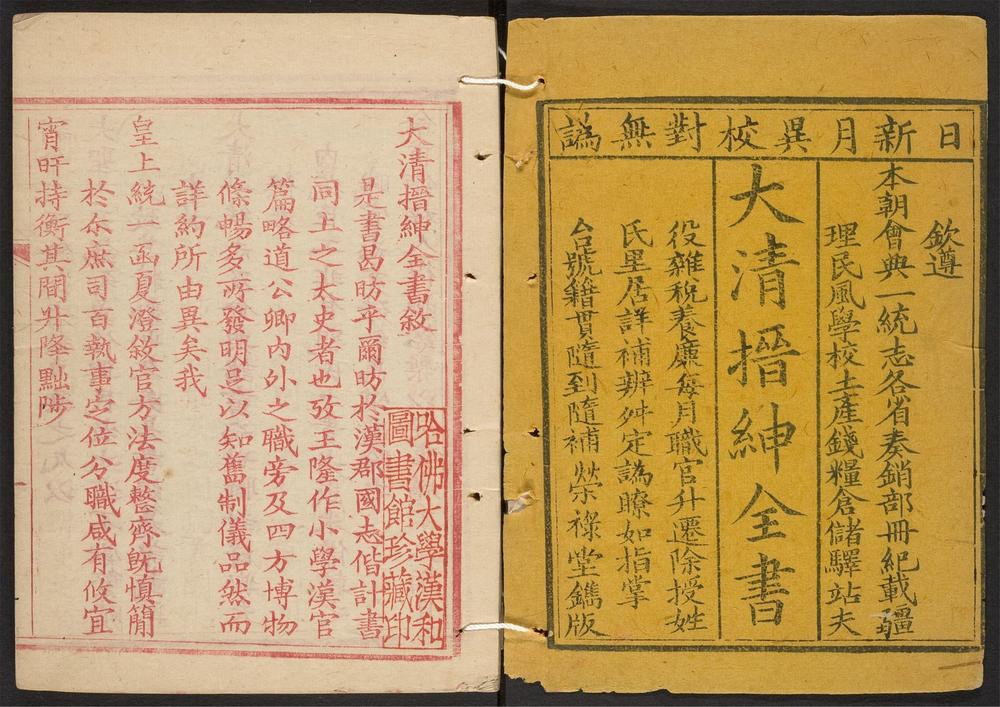 日新月異校對無譌
欽遵
本朝會典一統志各省奏銷部冊紀載疆
理民風學校土產錢糧倉儲驛站夫
大清搢紳全書
役雜稅養廉每月職官升遷除授姓
氏里居詳補辨舛定譌瞭如指掌
台號籍貫隨到隨補榮祿堂鐫版
大清搢紳全書敘
是書曷昉乎爾昉於漢郡國志偕計書
同上之太史者也攷王隆作小學漢官
篇略道公卿內外之職旁及四方博物
條暢多所發明足以知舊制儀品然而
詳約所由異矣我
皇上統一函夏澄敘官方法度整齊既慎簡
於尒庶司百執事定位分職咸有攸宜
宵旰持衡其間升降黜陟
哈佛大學漢和
圖書館珍藏印